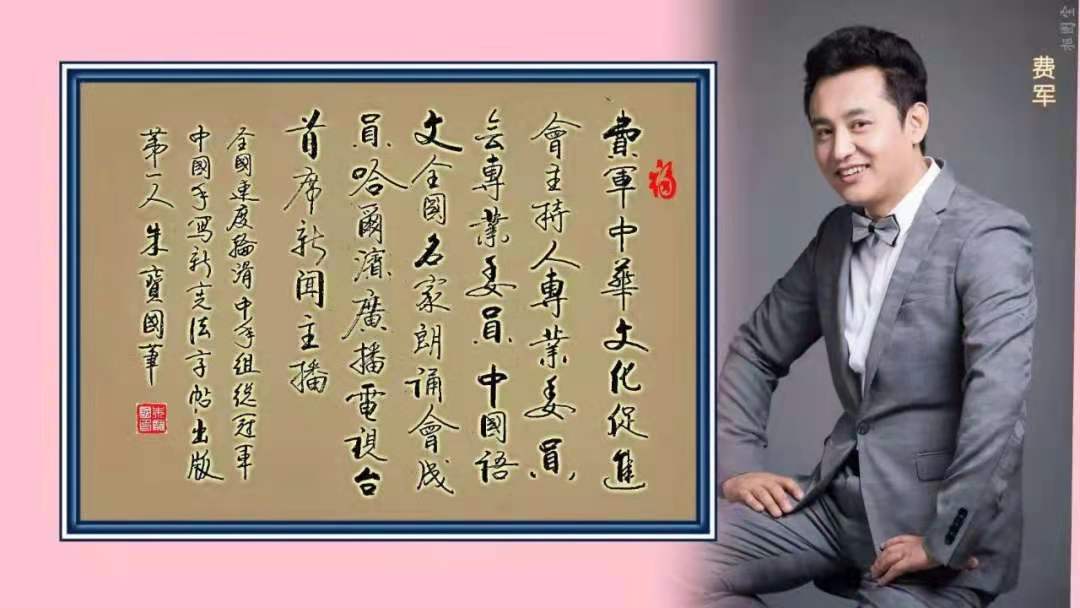 费军
福
費軍中華文化促進
會主持人專業委員
会專業委員中國語
文全國名家朗诵會成
員哈爾濱廣播電視台
首席新闻主播
全國速度輪滑中年组總冠軍
中國手写新書法字帖出版
第一人朱寶國筆